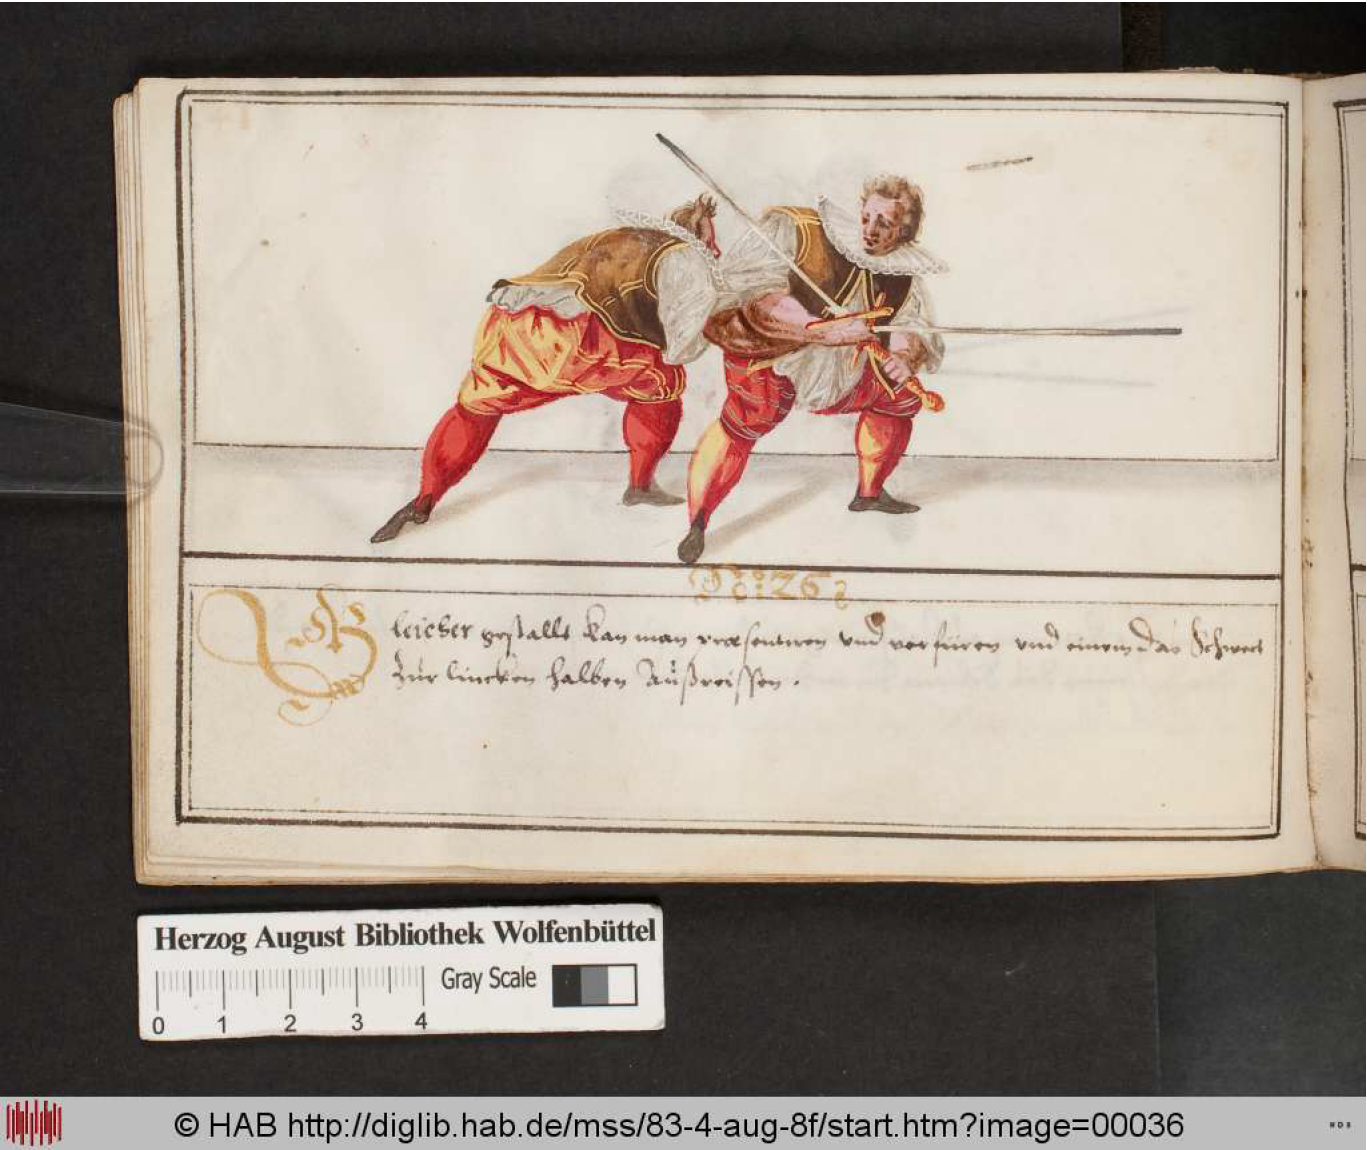 N: 26
Gleicher gestallt kan man præsentiren vnd verfüren vnd einem das Schwert
zur lincken halben Außreissen.
Herzog August Bibliothek Wolfenbüttel
Gray Scale
0 1 2 3 4
© HAB http://diglib.hab.de/mss/83-4-aug-8f/start.htm?image=00036